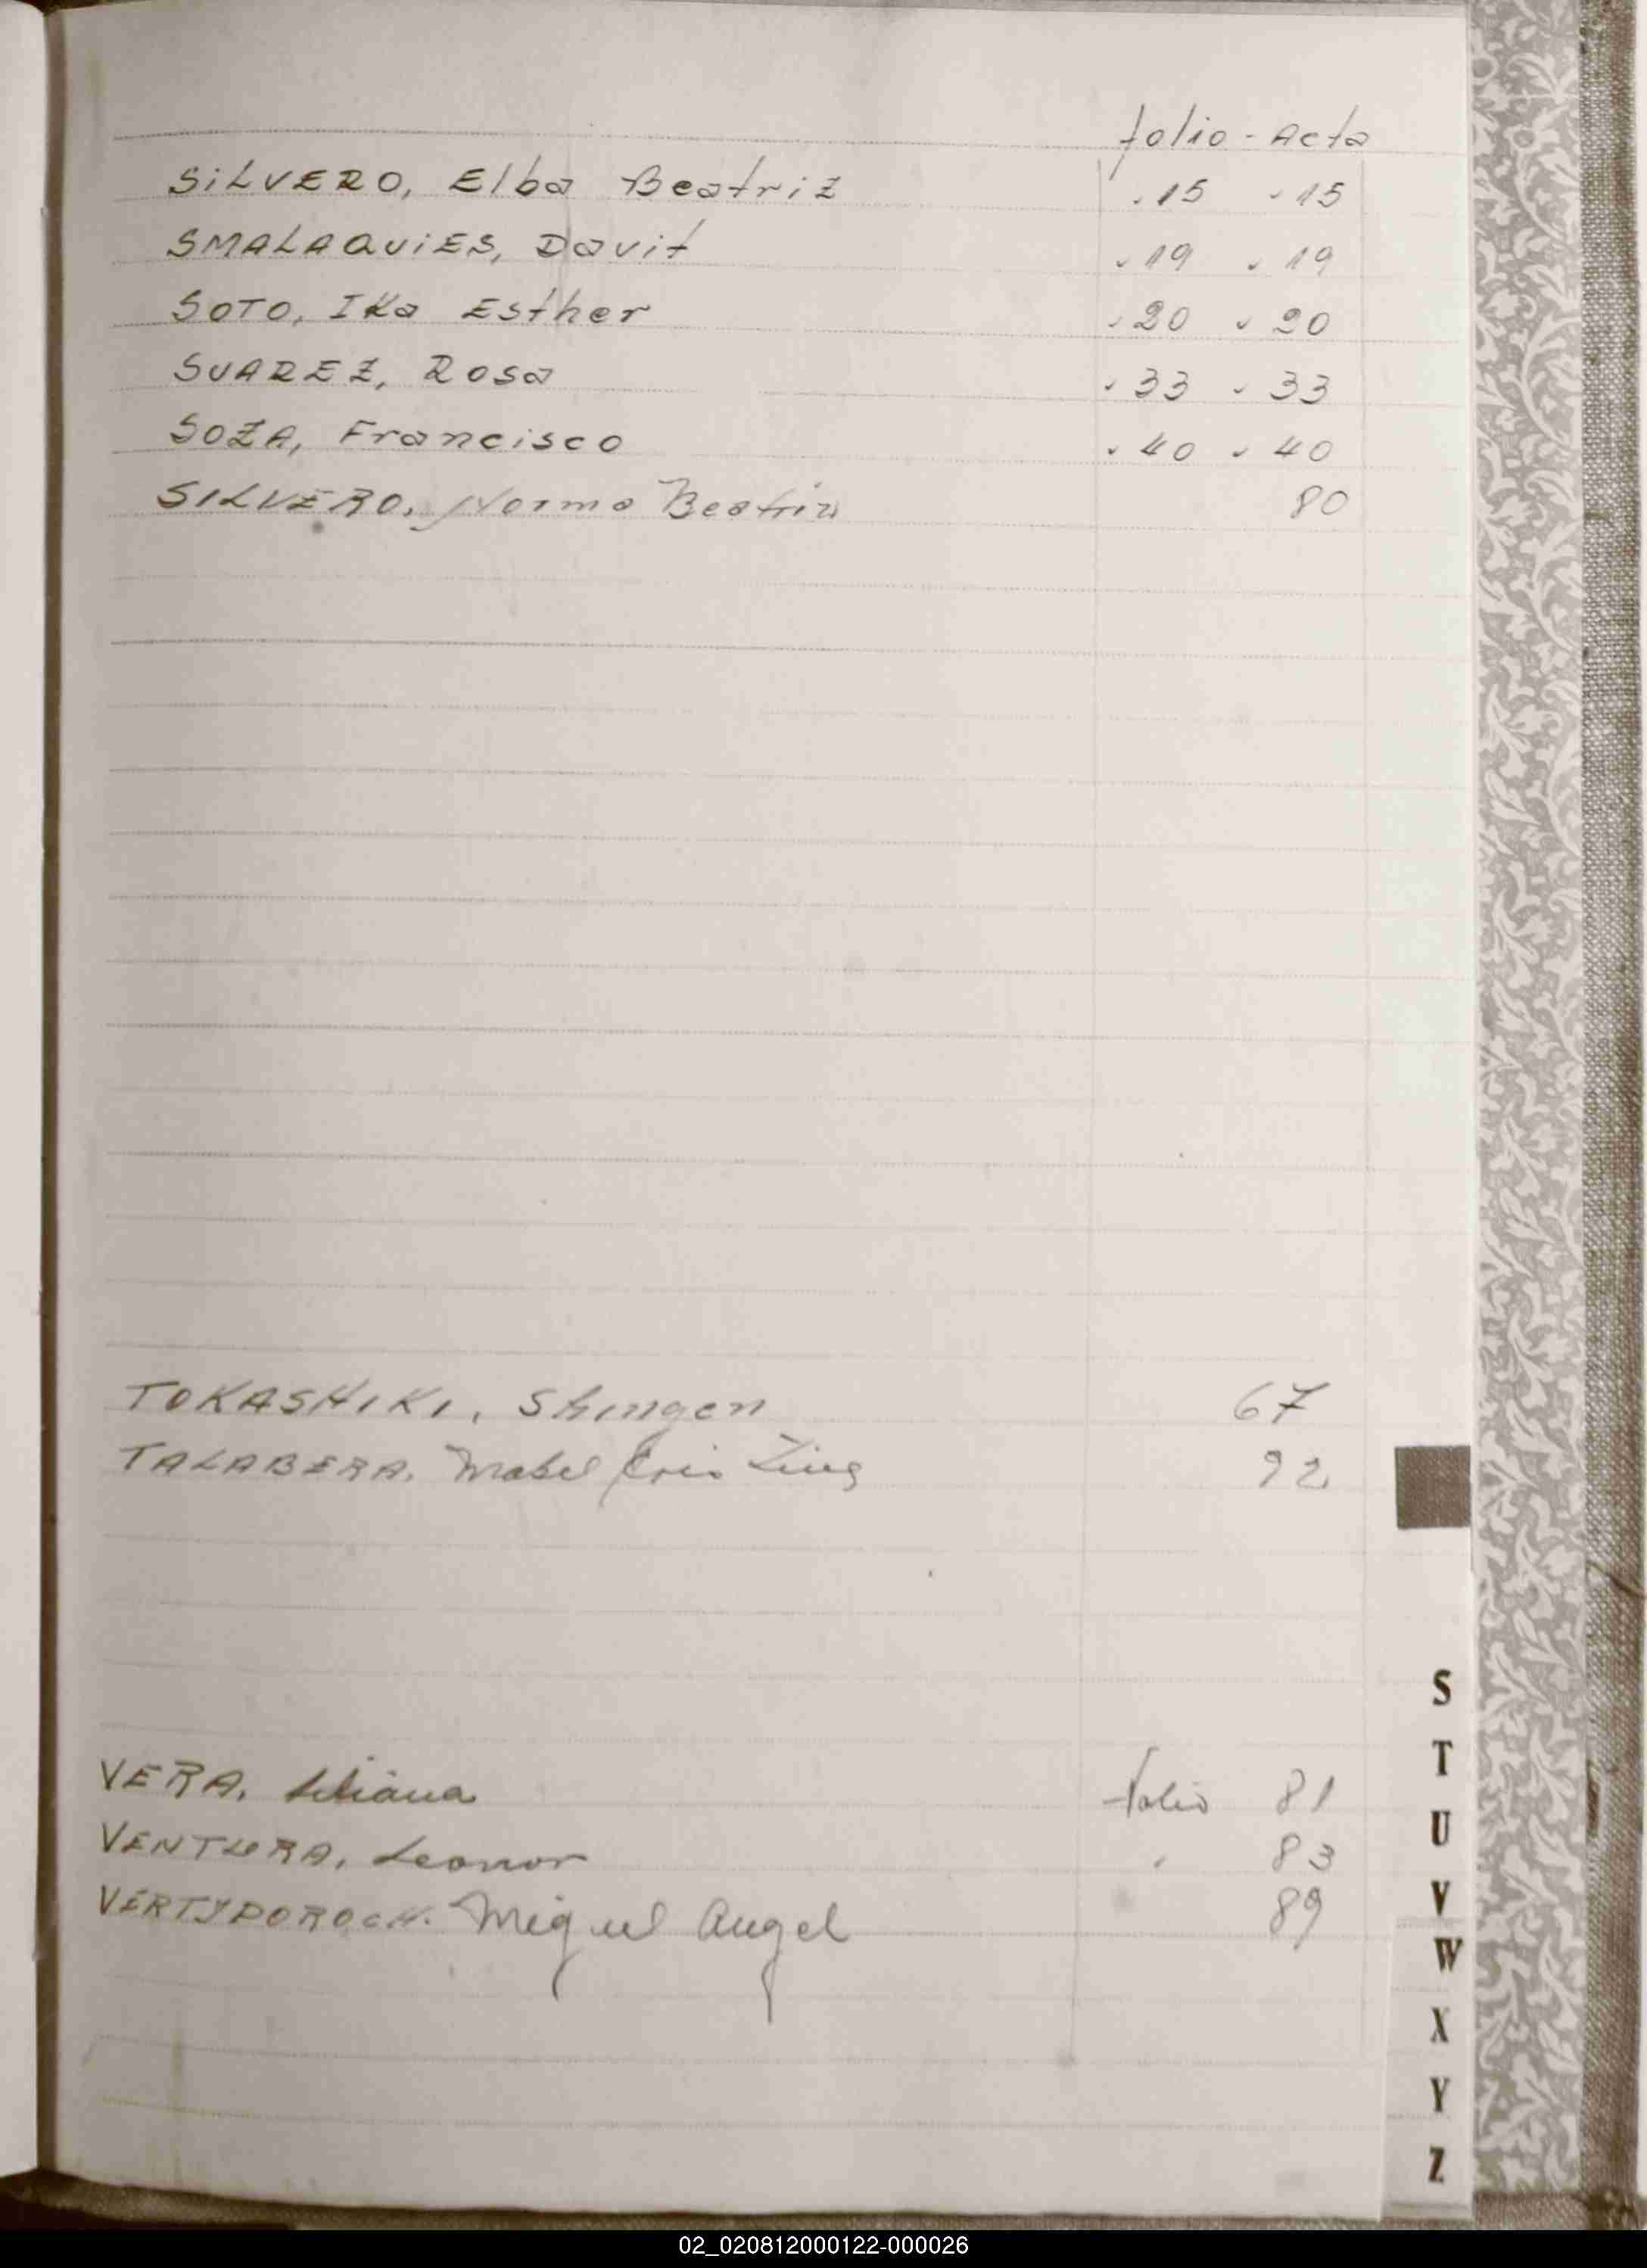 folio - Acta
SiLVERO, Elba Beatriz . 15 - 15
SMALAQUiES, Davit . 19 . 19
SOTO, IKa Esther . 20 . 20
SUAREZ, Rosa . 33 . 33
SOZA, Francisco . 40 . 40
SILVERO, Norma Beatriz 80
TOKASHIKI, Shingen 67
TALABERA, Mabel 92
VERA, Liliana folio 81
VENTURA, Leonor " 83
VERTYPOROCH. Miguel Angel 89
S
T
U
V
W
X
Y
Z
02_020812000122-000026